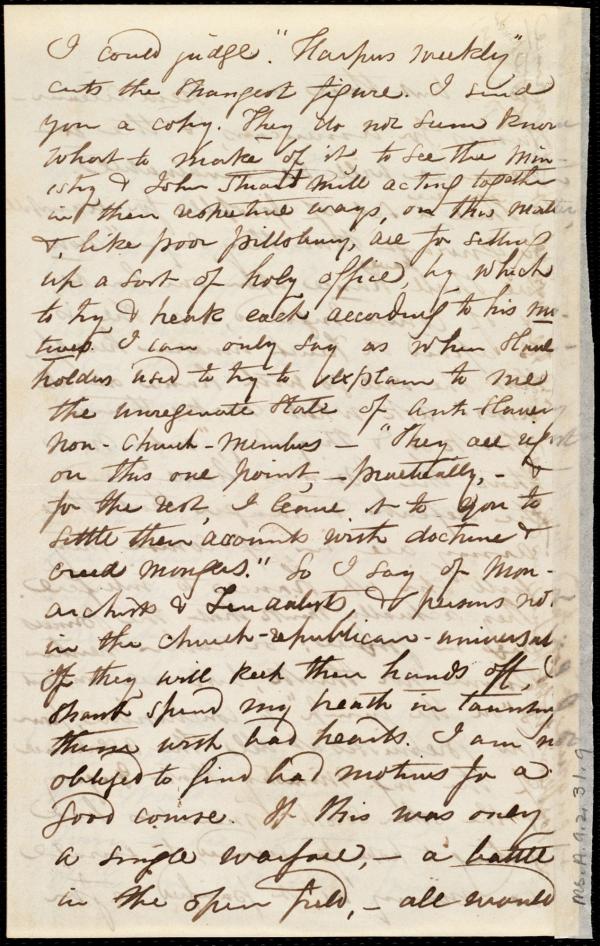 I could judge. "Harpers weekly"
cuts the strangest figure. I send
you a copy. They do not seem know
what to make of it to see the min-
istry & John Stuart Mill acting together
in their respective ways, on this matter,
&, like poor pillsbury, are for setting
up a sort of holy office, by which
to try & treat each according to his mo-
tives. I can only say as when Slave-
holders used to try to explain to me
the unregenerate state of Anti-Slavery
non-church-members — "They are right
on this one point, – practically, – &
for the rest, I leave it to you to
settle their accounts with doctrine &
creed mongers." So I say of Mon-
archists & Feudalists, & persons not
in the church-republican-universal
If they will keep their hands off, I
shant spend my breath in taunting
them with bad hearts. I am not
obliged to find bad motives for a
good course. If this was only
a single warfare, – a battle
in the open field, – all would
Ms.A.9.2.31.9